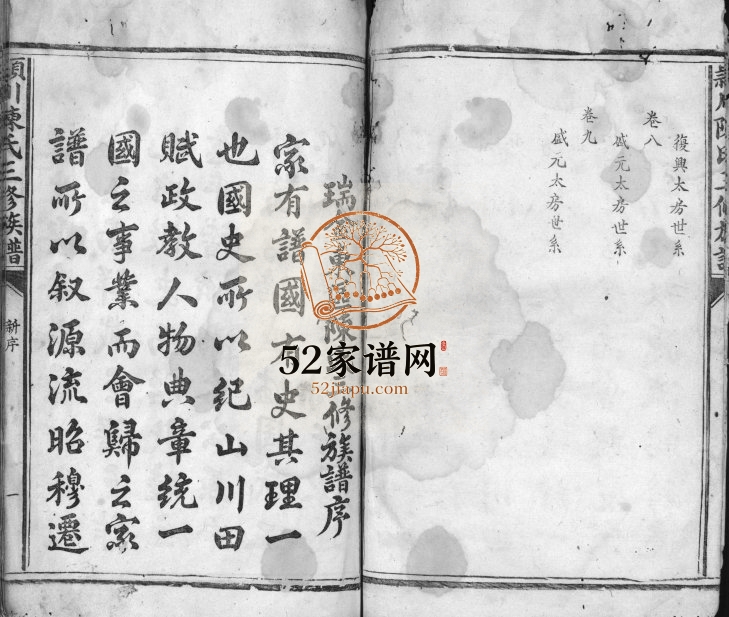 復興太房世系
卷八
盛元太房世系
卷九
盛元太房世系
瑞 東 陳 修族譜序
家有譜國有史其理一
也國史所以紀山川田
賦政教人物典章統一
國之事業而會歸之家
譜所以叙源流昭穆遷
川陳氏三修族譜
新序
一
52家谱网
52jiapu.com